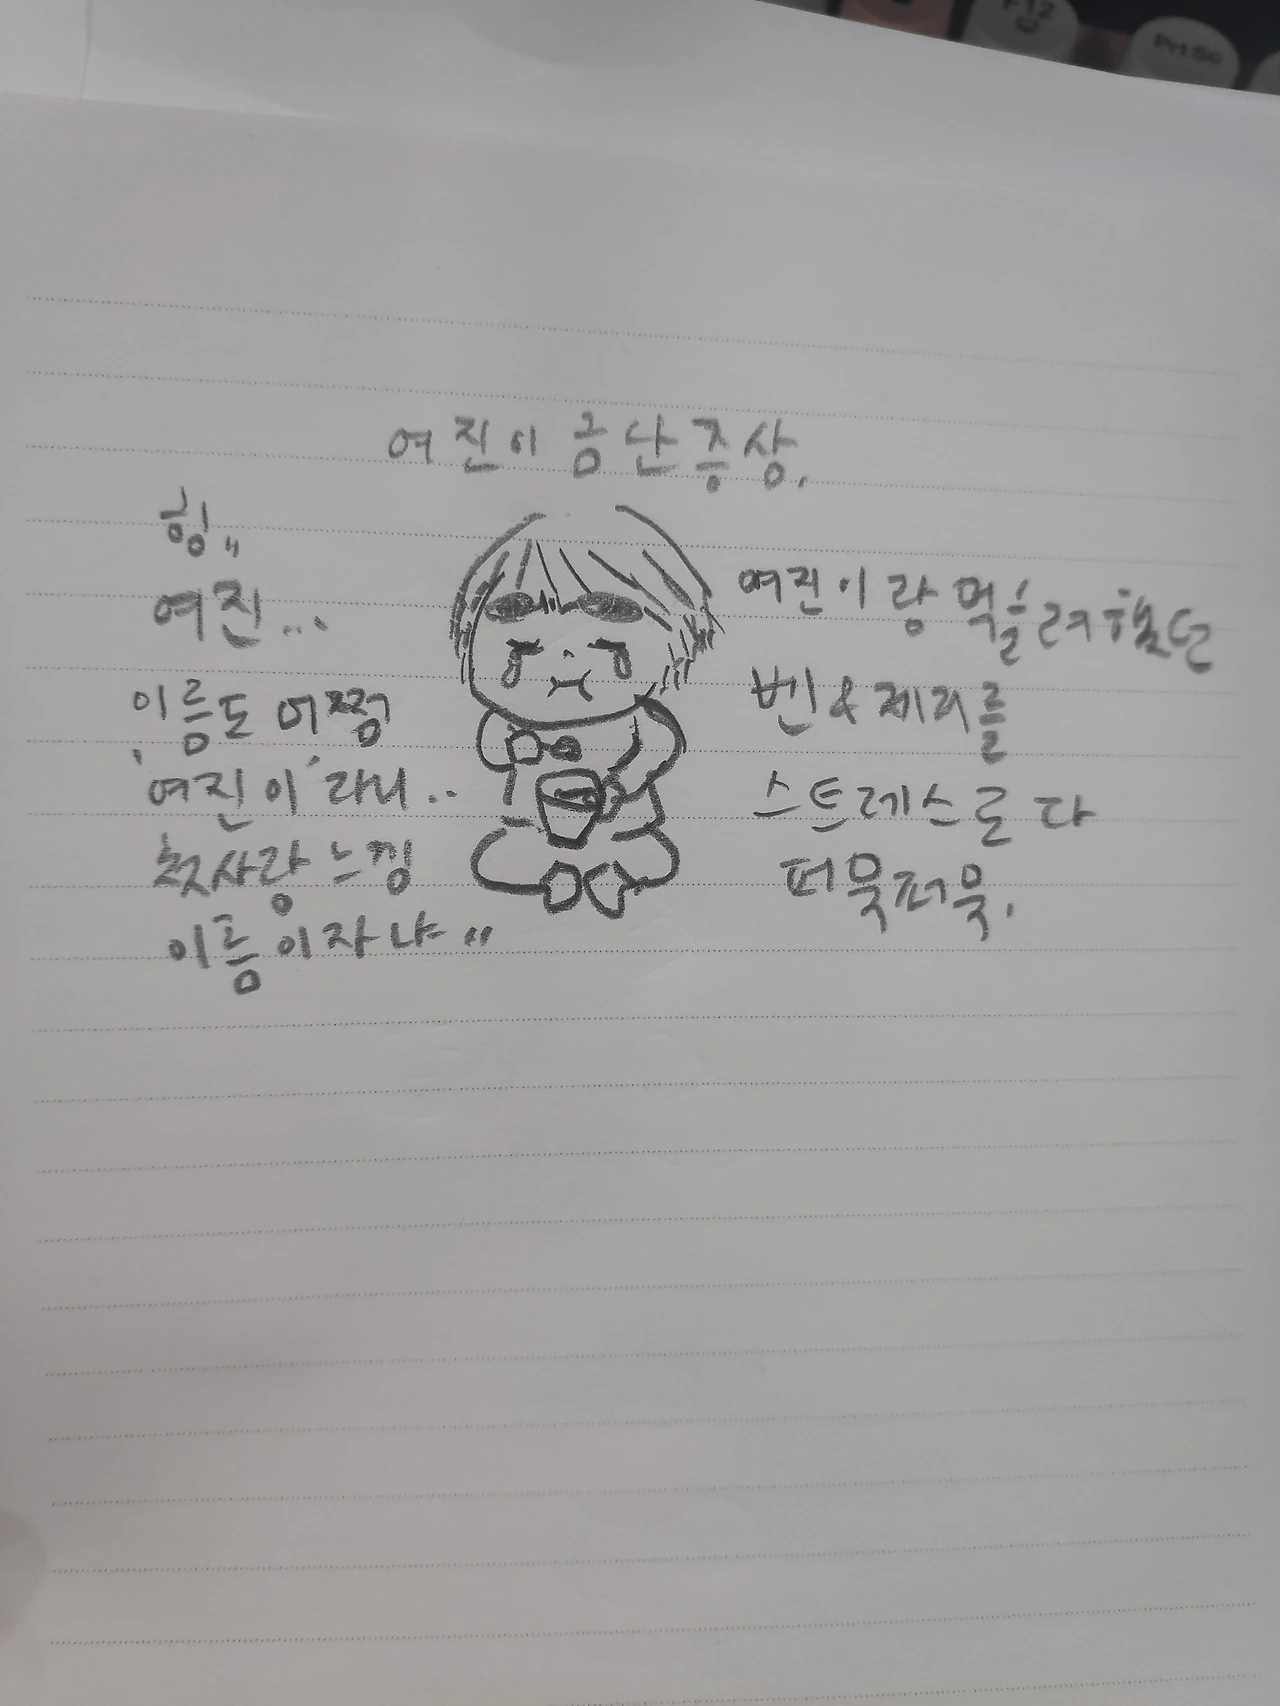 F12
PrtSc
여진이 금단증상.
힝,,
여진...
이름도 어쩜
'여진이'라니..
첫사랑 느낌
이름이자냐 "
여진이랑 먹을려했던
벤&제리를
스트레스로 다
퍼묵퍼묵.